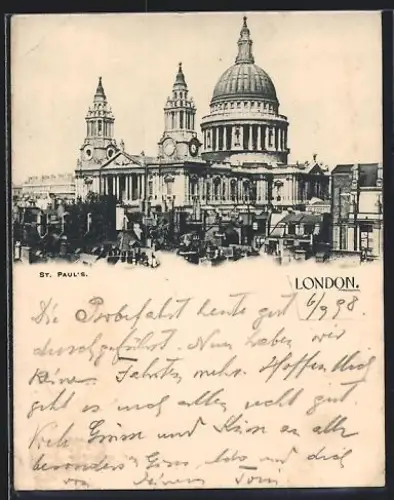 ST. PAUL'S.
LONDON.
6/9 98.
Die Probefahrt heute gut
durchgeführt. Nun haben wir
keine Fahrten mehr. Hoffentlich
geht es euch allen recht gut.
Viele Grüsse und Küsse an alle
besonders und dich
von Deinem